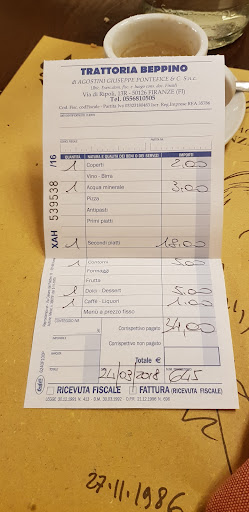 TRATTORIA BEPPINO
di AGOSTINI GIUSEPPE PONTEFICE & C. S.n.c.
Via di Ripoli, 13R - 50126 FIRENZE (FI)
Tel. 0556810505
XAH 539538 /16
QUANTITÀ NATURA E QUALITÀ DEI BENI O DEI SERVIZI IMPORTI
1 Coperti 2,00
Vino - Birra
1 Acqua minerale 3,00
Pizza
Antipasti
Primi piatti
1 Secondi piatti 18,00
1 Contorni 5,00
Formaggi
Frutta
Dolci - Dessert 5,00
1 Caffè - Liquori 1,00
Menù a prezzo fisso
Corrispettivo pagato 34,00
Corrispettivo non pagato
Totale €
24/03/2018 645
RICEVUTA FISCALE FATTURA (RICEVUTA FISCALE)
27.11.1986